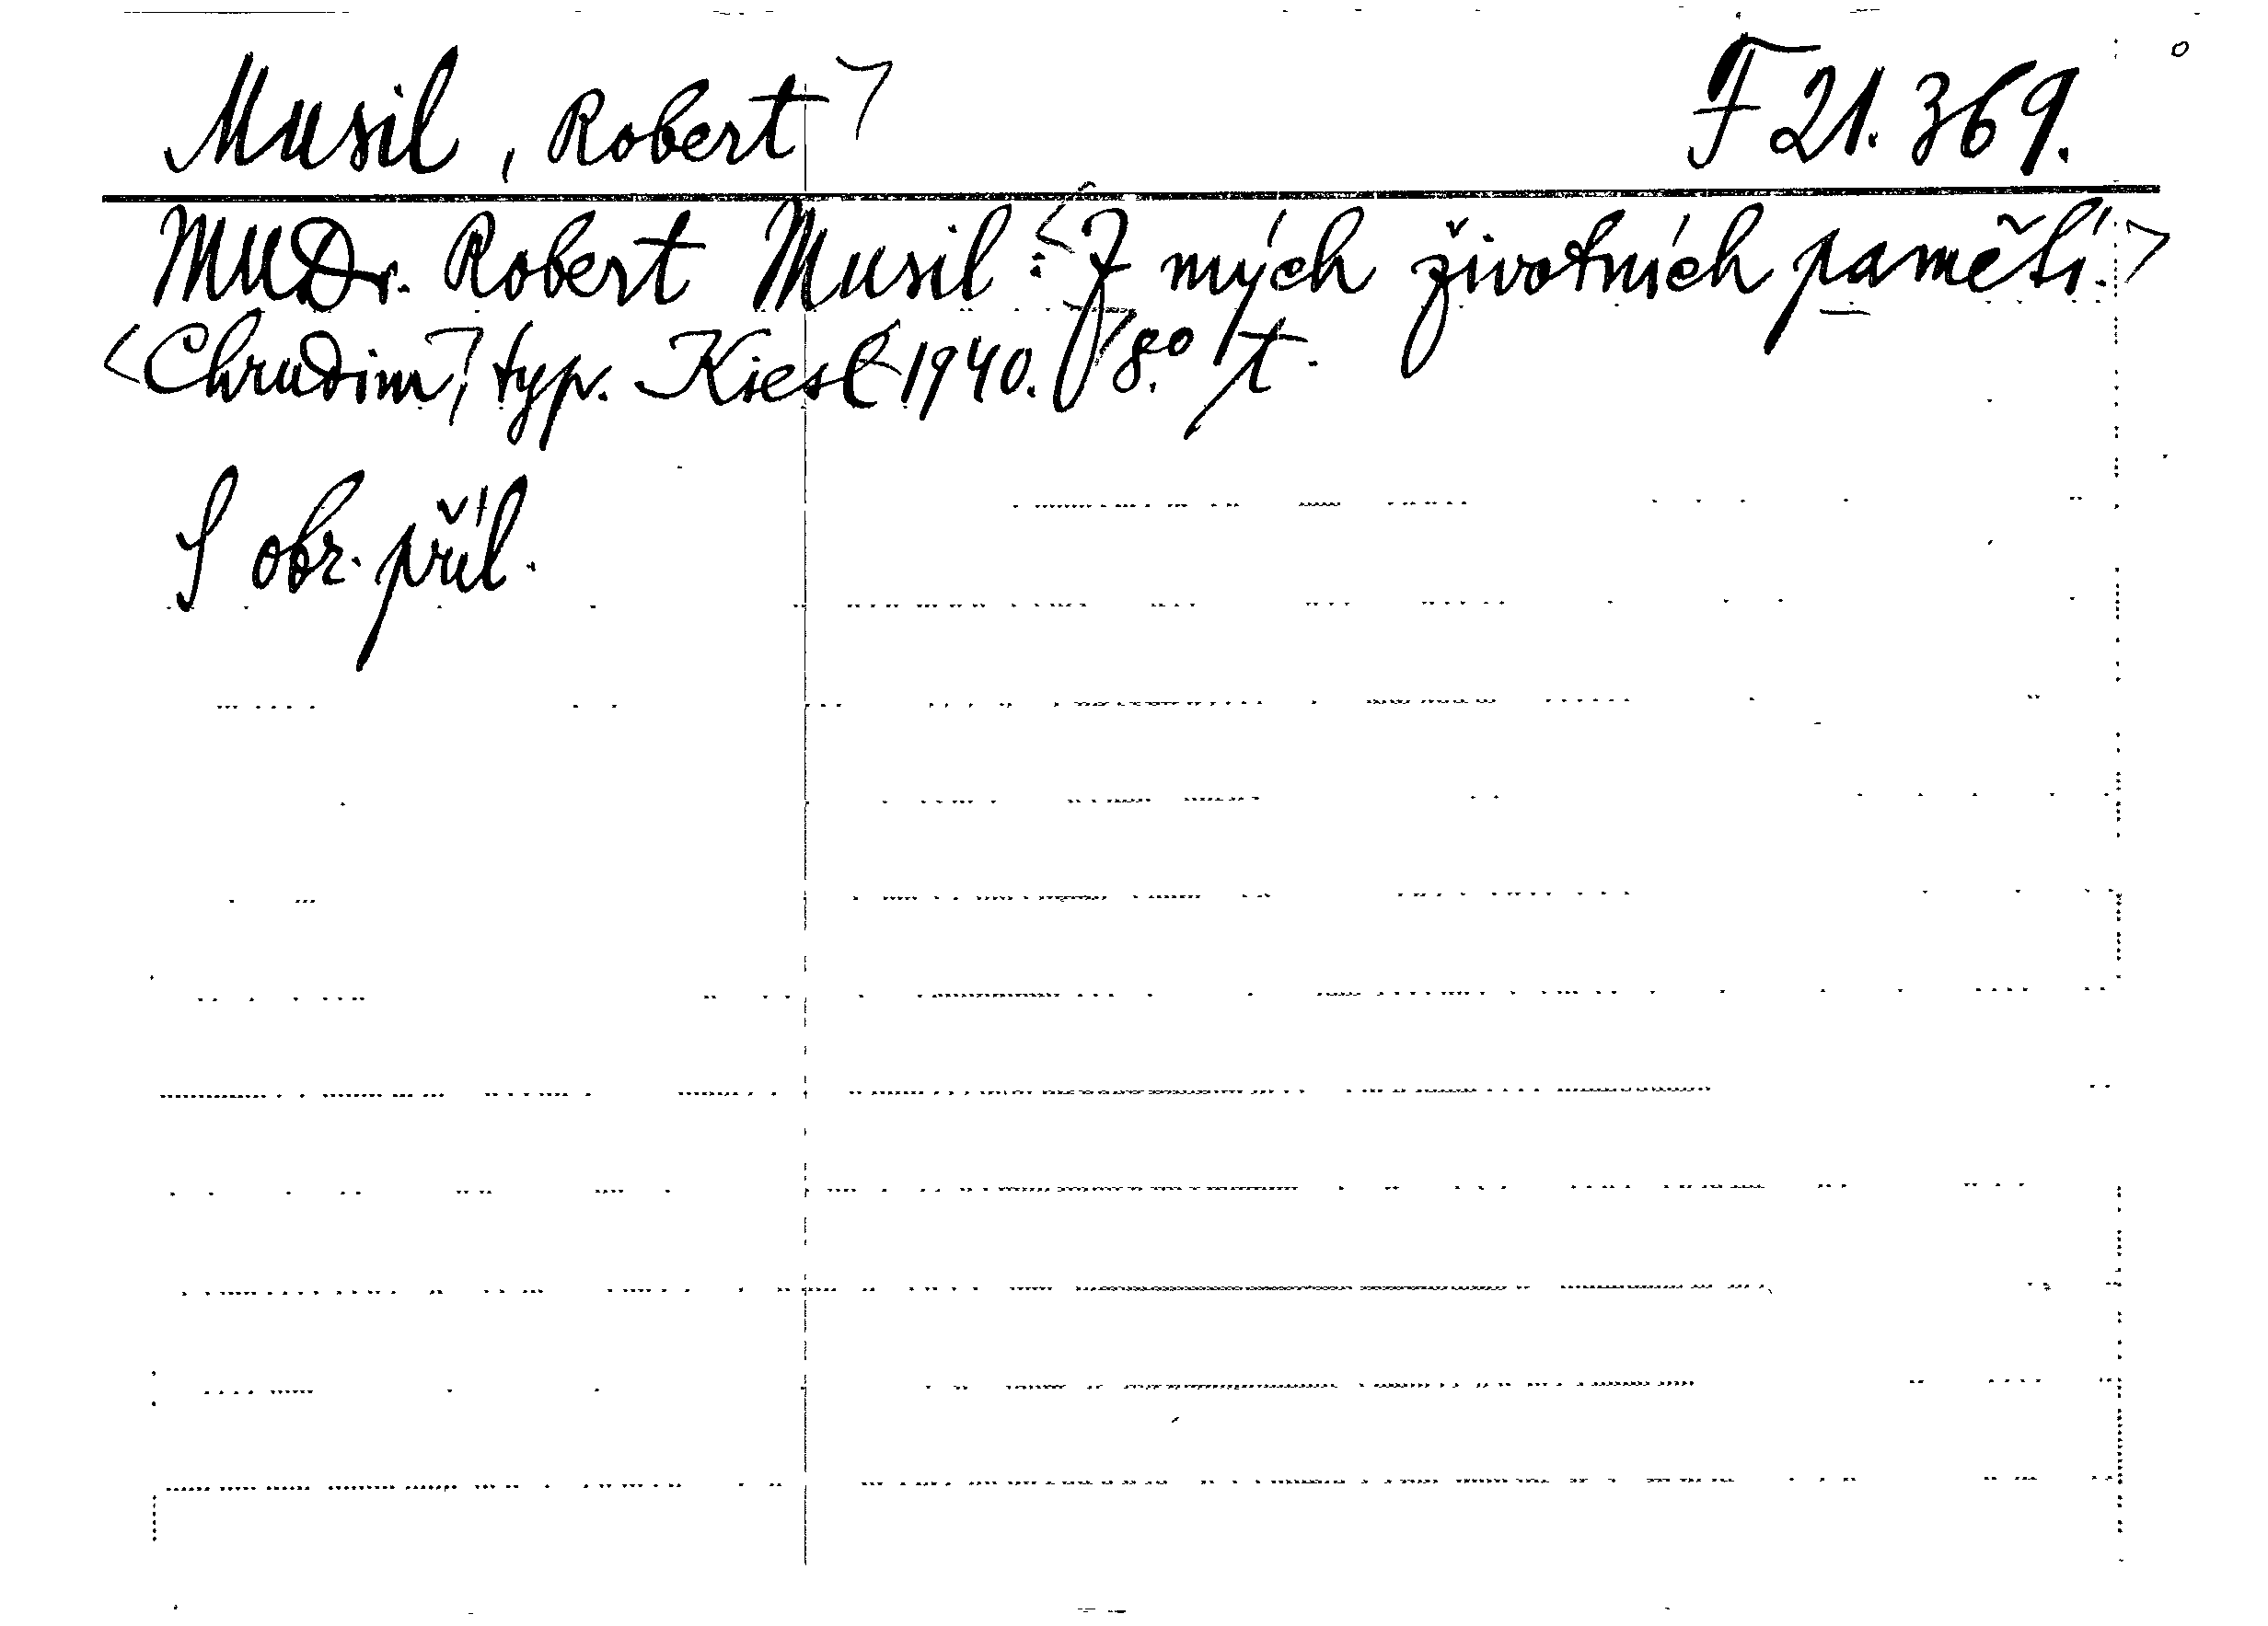 Musil, Robert>
F 21.369.
MUDr. Robert Musil: <Z mých životních pamětí.>
<Chrudim>, typ. Kiesl <1940.> 8.º
S obr. příl.